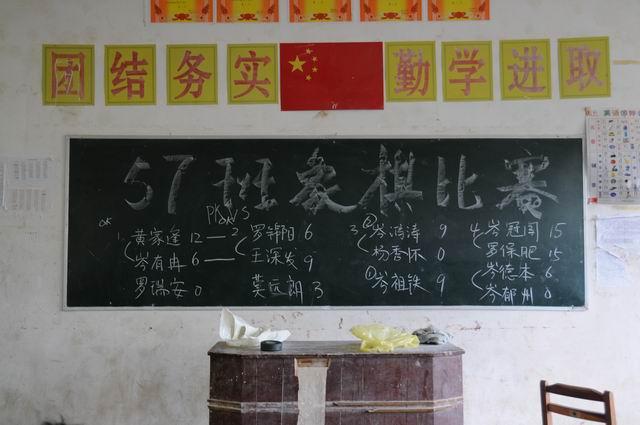 团结务实 勤学进取
57班象棋比赛
PK
1 黄家逢 12 — 2 罗锦阳 6
岑有冉 6 — 王深发 9
罗瑞安 0 莫远朗 3
3 ② 岑涛 9
杨秀怀 0
① 岑祖铁 9
4 岑冠 15
罗保肥 15
岑德本 6
岑郁州 0